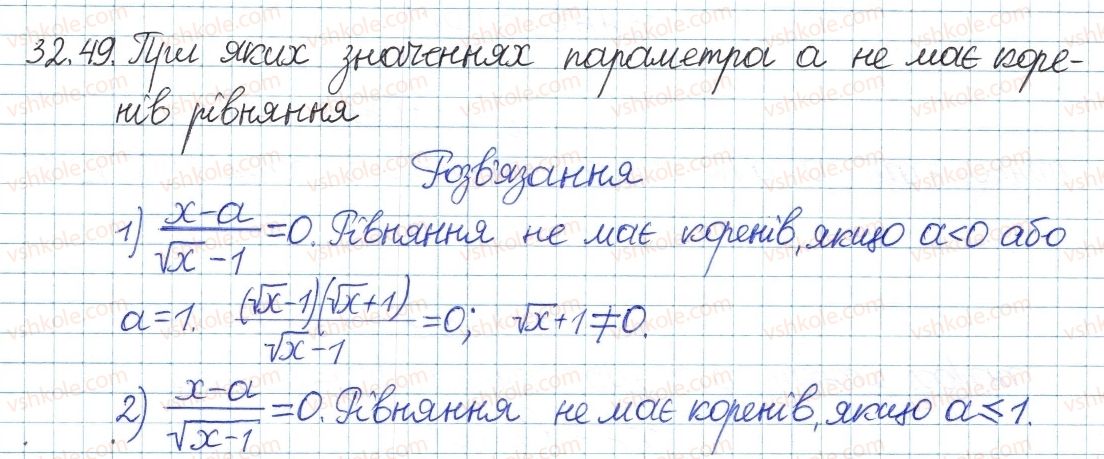 32.49. При яких значеннях параметра а не має коре-
нів рівняння
Розв'язання
1) (x-a)/(√x -1) =0. Рівняння не має коренів, якщо a<0 або
a=1. (√x-1)(√x+1)/(√x-1) =0; √x+1≠0.
2) (x-a)/√(x-1) =0. Рівняння не має коренів, якщо a≤1.
vshkole.com